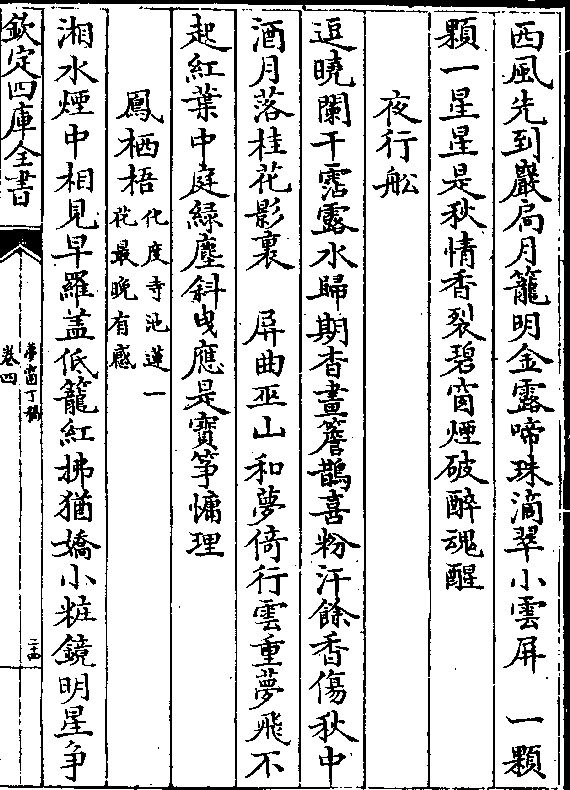 西風先到巖扃月籠明金露啼珠滴翠小雲屏　一顆
顆一星星是秋情香裂碧窗煙破醉魂醒
夜行船
逗曉闌干霑露水歸期杳畫簷鵲喜粉汗餘香傷秋中
酒月落桂花影裏　屏曲巫山和夢倚行雲重夢飛不
起紅葉中庭綠塵斜曳應是寶箏慵理
鳳栖梧化度寺池蓮一
花最晚有感
湘水煙中相見早羅蓋低籠紅拂猶嬌小粧鏡明星爭
欽定四庫全書
夢窗丁稿
卷四
二十四